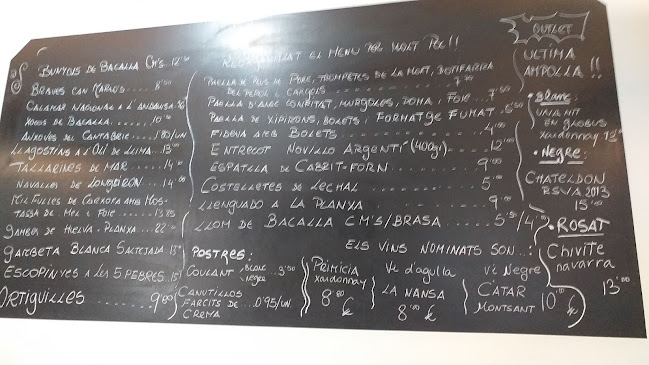 BUNYOLS DE BACALLA CM'S. 12'50
BRAVES CON MARLO'S ..... 8'00
CALAMAR NACIONAL A L'ANDALUSA
XOGOS DE BACALLA ..... 10'50
ANXOVES DEL CANTABRIC ... 1'80/UN
LLAGOSTINS A L'OLI DE LLIMA .. 13'00
TALLARINES DE MAR ..... 14'00
NAVALLES DE LONGUEIRON .. 14'00
MIL FULLES DE CARXOFA AMB MOS-
TASSA DE MEL I FOIE ..... 13'25
GAMBA DE HUELVA - PLANXA .... 22'00
GAMBETA BLANCA SALTEJADA
ESCOPINYES A LES 5 PEBRES
ORTIGUILLES ....... 9'00
EL MENU PER MOLT POC !!
PAELLA DE PEUS DE PORC, TROMPETES DE LA MORT, BOTIFARRA
DEL PEROL I CARGOLS
PAELLA D'ANEC CONFITAT, MURGOLES, POMA I FOIE ... 7'50
PAELLA DE XIPIRONS, BOLETS I FORMATGE FUMAT
FIDEUA AMB BOLETS ...... 4'00
ENTRECOT NOVILLO ARGENTÍ (400gr) ... 12'00
ESPATLLA DE CABRIT-FORN ..... 9'00
COSTELLETES DE LECHAL ..... 5'00
LLENGUADO A LA PLANXA ...... 9'00
LLOM DE BACALLA CM'S/BRASA ... 5'50/4'00
POSTRES:
COULANT BLANC NEGRE 3'50
CANUTILLOS
FARCITS DE .... 0'95/UN.
CREMA
ELS VINS NOMINATS SON ..:
PRIMICIA
xardonnay
8'00 €
Vi d'agulla
LA NANSA
8'00 €
Vi Negre
CATAR
MONTSANT 10'00 €
OUTLET
ULTIMA
AMPOLLA !!
• Blanc:
UNIA NIT
EN GLOBUS
xardonnay
• NEGRE:
CHATELDON
RSVA 2013
15'00
• ROSAT
CHIVITE
navarra
13'00